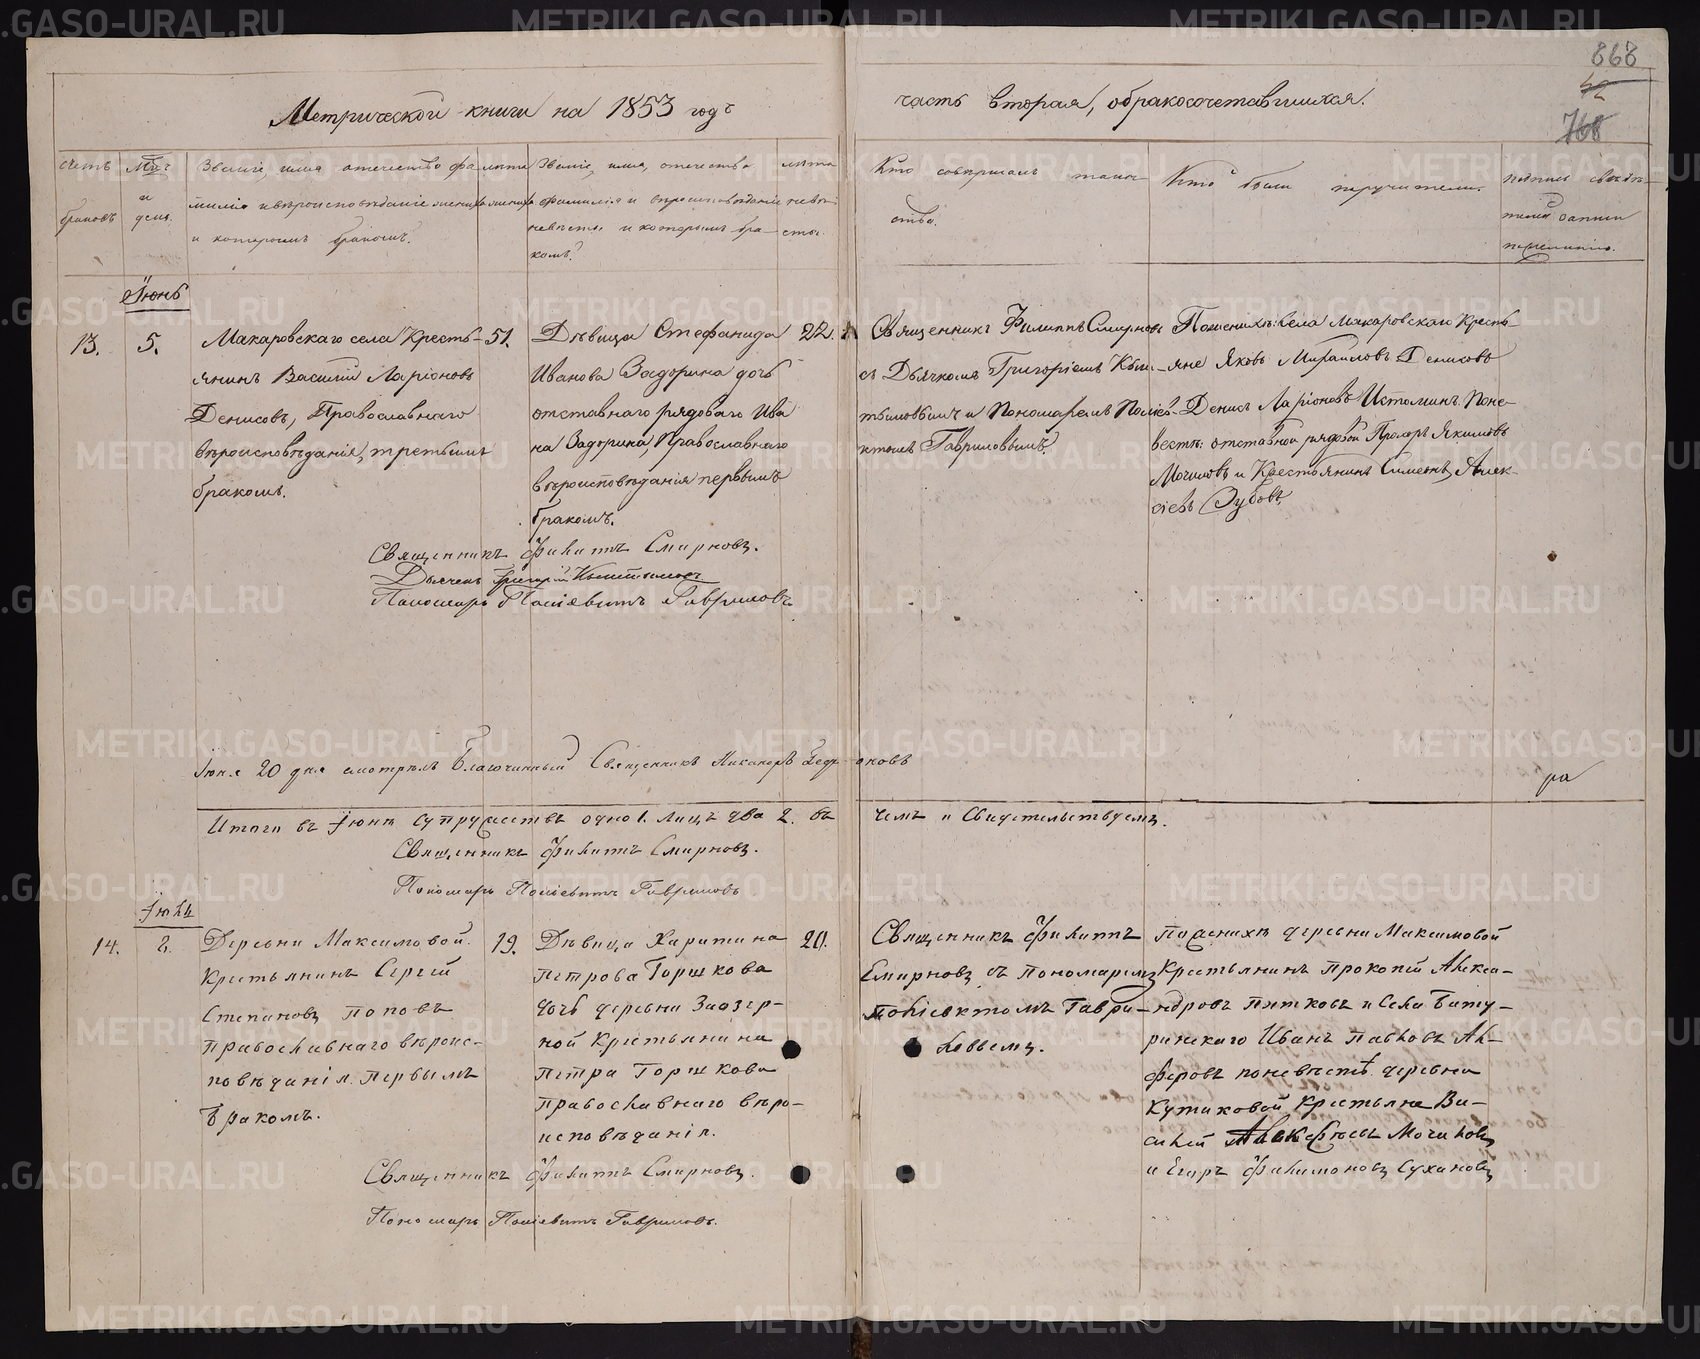 868
42
768
Метрической книги на 1853 годъ
часть вторая, о бракосочетавшихся.
счетъ браковъ
Мѣц. и день.
Званіе, имя отечество фа-
милія и вѣроисповѣданіе жениха
и которымъ бракомъ.
лѣта
жениха
Званіе, имя, отечество
фамилія и вѣроисповѣданіе
невѣсты и которымъ бра-
комъ.
лѣта
невѣ-
сты.
Кто совершалъ таин-
ство.
Кто были поручители.
Іюнь
13.
5.
Макаровскаго села Кресть-
янинъ Василій Ларіоновъ
Денисовъ, Православнаго
вѣроисповѣданія, третьимъ
бракомъ.
51.
Дѣвица Стефанида
Иванова Задорина дочь
отставнаго рядоваго Ива
на Задорина, Православнаго
вѣроисповѣданія первымъ
бракомъ.
22.
Священникъ Филиппъ Смирновъ
съ Дьячкомъ Григоріемъ Кыш-
тымовымъ и Пономаремъ Поліев-
ктомъ Гавриловымъ.
По женихѣ: села Макаровскаго Кресть-
яне Яковъ Михаиловъ Денисовъ
Денисъ Ларіоновъ Истоминъ. По не-
вестѣ: отставной рядовой Прохоръ Якимовъ
Мочиловъ и Крестьянинъ Симеонъ Алек-
сіевъ Зубовъ.
Священникъ Филиппъ Смирновъ.
Дьячекъ Григорій Кыштымовъ
Пономарь Поліевктъ Гавриловъ.
Іюня 20 дня смотрѣлъ Благочинный Священникъ Никаноръ
Итого въ Іюнѣ супружествъ одно 1. лицъ два 2. въ
чемъ и Свидетельствуемъ.
Священникъ Филиппъ Смирновъ.
Пономарь Поліевктъ Гавриловъ
Іюль
14.
8.
Деревни Максимовой
Крестьянинъ Сергей
Степановъ Поповъ
православнаго вѣроис-
повѣданія первымъ
бракомъ.
19.
Дѣвица Харитина
Петрова Горшкова
дочь деревни Заозер-
ной Крестьянина
Петра Горшкова
православнаго вѣро-
исповѣданія.
20.
Священникъ Филиппъ
Смирновъ съ Пономаремъ
Поліевктомъ Гаври-
ловымъ.
По женихѣ деревни Максимовой
Крестьянинъ Прокопій Алекса-
ндровъ Пятковъ и Села Бату-
ринскаго Иванъ Павловъ Ал-
феровъ по невѣстѣ деревни
Кутиковой Крестьяне Ва-
силій Алексѣевъ Мочиловъ
и Егоръ Филимоновъ Сухановъ
Священникъ Филиппъ Смирновъ.
Пономарь Поліевктъ Гавриловъ.
METRIKI.GASO-URAL.RU